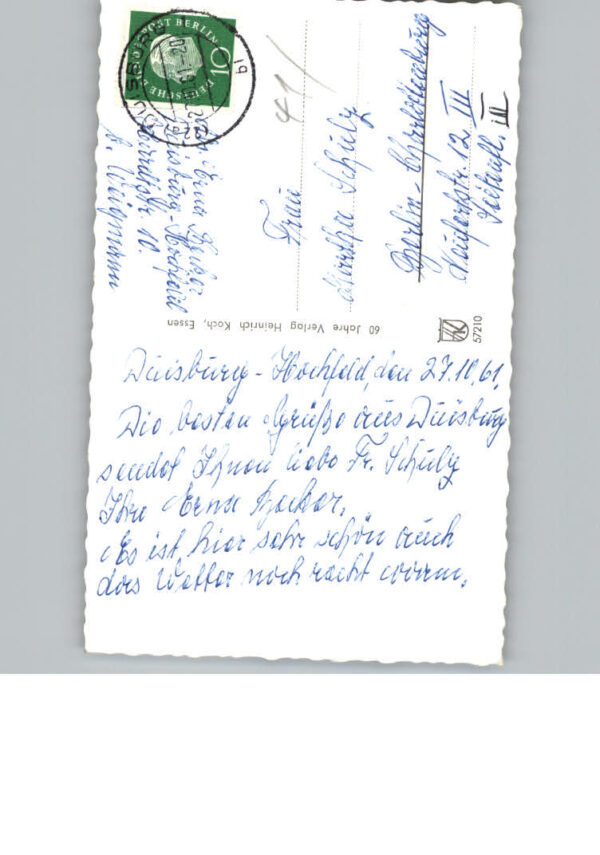 Duisburg-Hochfeld, den 27.10.61.
Die besten Grüße aus Duisburg
sendet Ihnen liebe Fr. Schulz
Ihre Erna Becker.
Es ist hier sehr schön auch
das Wetter noch recht warm.
60 Jahre Verlag Heinrich Koch, Essen
57210
DEUTSCHE BUNDESPOST BERLIN
10
DUISBURG
Abs. Erna Becker
Duisburg-Hochfeld
10.
b. Weigmann
41/
Frau
Martha Schulz
Berlin-Charlottenburg
12 III
Seitenfl. III